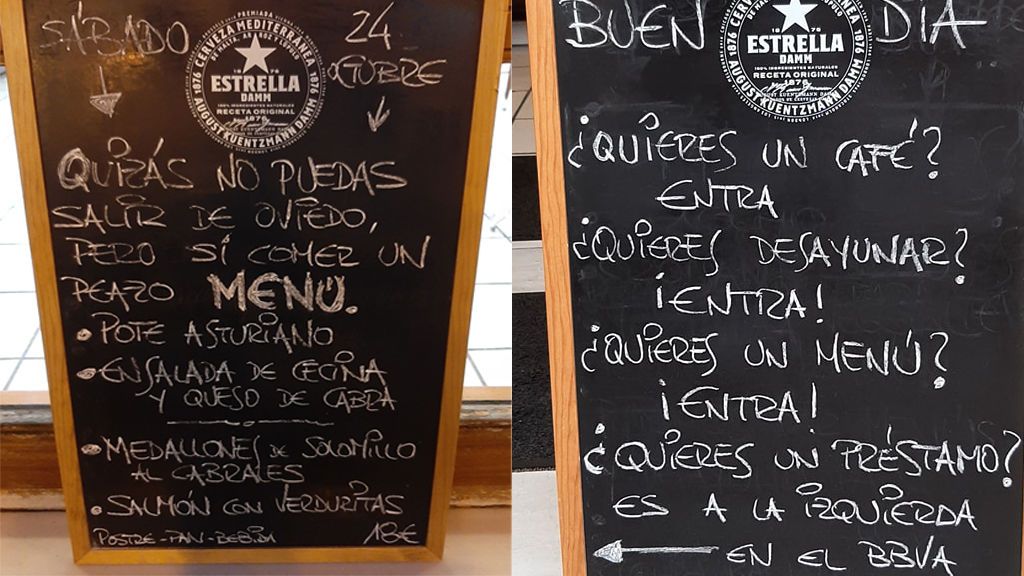 SÁBADO 24
OCTUBRE
CERVEZA MEDITERRÁNEA
1876 AUGUST KUENTZMANN DAMM 1876
1876
ESTRELLA
DAMM
100% INGREDIENTES NATURALES
RECETA ORIGINAL
1876
QUIZÁS NO PUEDAS
SALIR DE OVIEDO,
PERO SÍ COMER UN
PEAZO MENÚ.
• POTE ASTURIANO
• ENSALADA DE CECINA
Y QUESO DE CABRA
• MEDALLONES DE SOLOMILLO
AL CABRALES
• SALMÓN CON VERDURITAS
POSTRE-PAN-BEBIDA 18€
BUEN DÍA
1876 AUGUST KUENTZMANN DAMM 1876
1876
ESTRELLA
DAMM
100% INGREDIENTES NATURALES
RECETA ORIGINAL
1876
¿QUIERES UN CAFÉ?
ENTRA
¿QUIERES DESAYUNAR?
¡ENTRA!
¿QUIERES UN MENÚ?
¡ENTRA!
¿QUIERES UN PRÉSTAMO?
ES A LA IZQUIERDA
← EN EL BBVA